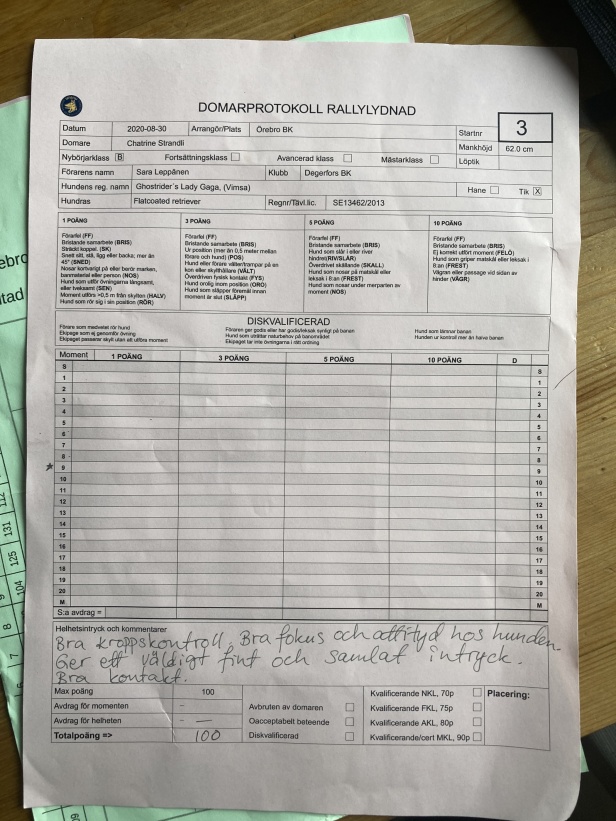 DOMARPROTOKOLL RALLYLYDNAD
Datum 2020-08-30 Arrangör/Plats Örebro BK Startnr 3
Domare Chatrine Strandli Mankhöjd 62.0 cm
Nybörjarklass B Fortsättningsklass Avancerad klass Mästarklass Löptik
Förarens namn Sara Leppänen Klubb Degerfors BK
Hundens reg. namn Ghostrider´s Lady Gaga, (Vimsa) Hane Tik X
Hundras Flatcoated retriever Regnr/Tävl.lic. SE13462/2013
1 POÄNG
Förarfel (FF)
Bristande samarbete (BRIS)
Sträckt koppel. (SK)
Snett sitt, stå, ligg eller backa; mer än
45° (SNED)
Nosar kortvarigt på eller berör marken,
banmaterial eller person (NOS)
Hund som utför övningarna långsamt,
eller tveksamt (SEN)
Moment utförs >0,5 m från skylten (HALV)
Hund som rör sig i sin position (RÖR)
3 POÄNG
Förarfel (FF)
Bristande samarbete (BRIS)
Ur position (mer än 0,5 meter mellan
förare och hund) (POS)
Hund eller förare välter/trampar på en
kon eller skylthållare (VÄLT)
Överdriven fysisk kontakt (FYS)
Hund orolig inom position (ORO)
Hund som släpper föremål innan
moment är slut (SLÄPP)
5 POÄNG
Förarfel (FF)
Bristande samarbete (BRIS)
Hund som slår i eller river
hindret(RIV/SLÅR)
Överdrivet skällande (SKALL)
Hund som nosar på matskål eller
leksak i 8:an (FREST)
Hund som nosar under merparten av
moment (NOS)
10 POÄNG
Förarfel (FF)
Bristande samarbete (BRIS)
Ej korrekt utfört moment (FELÖ)
Hund som griper matskål eller leksak i
8:an (FREST)
Vägran eller passage vid sidan av
hinder (VÄGR)
DISKVALIFICERAD
Förare som medvetet rör hund
Ekipage som ej genomför övning
Ekipaget passerar skylt utan att utföra moment
Föraren ger godis eller har godis/leksak synligt på banan
Hund som uträttar naturbehov på banområdet
Ekipaget tar inte övningarna i rätt ordning
Hund som lämnar banan
Hunden ur kontroll mer än halva banan
Moment 1 POÄNG 3 POÄNG 5 POÄNG 10 POÄNG D
S S
1 1
2 2
3 3
4 4
5 5
6 6
7 7
8 8
9 9
10 10
11 11
12 12
13 13
14 14
15 15
16 16
17 17
18 18
19 19
20 20
M M
S:a avdrag =
Helhetsintryck och kommentarer
Bra kroppskontroll. Bra fokus och attityd hos hunden.
Ger ett väldigt fint och samlat intryck.
Bra kontakt.
Max poäng 100 Kvalificerande NKL, 70p Placering:
Avdrag för momenten - Avbruten av domaren Kvalificerande FKL, 75p
Avdrag för helheten - — Oacceptabelt beteende Kvalificerande AKL, 80p
Totalpoäng => 100 Diskvalificerad Kvalificerande/cert MKL, 90p
ebro
tad
112
131
125
104
8
7